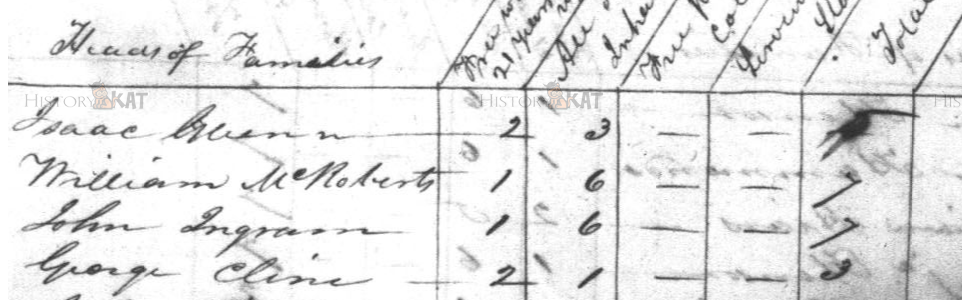 Heads of Families
Free w
21 Years
All
Inha
Free
Col
Total
HISTORY KAT HISTORY KAT HIS
Isaac Glenn — 2 3 — —
William McRoberts 1 6 — — 7
John Ingram — 1 6 — — 7
George Cline — 2 1 — — 3